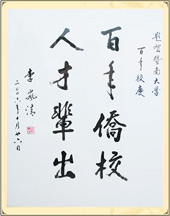 题赠暨南大学
百年校庆
百年侨校
人才辈出
李岚清
二〇〇六年十月廿六日